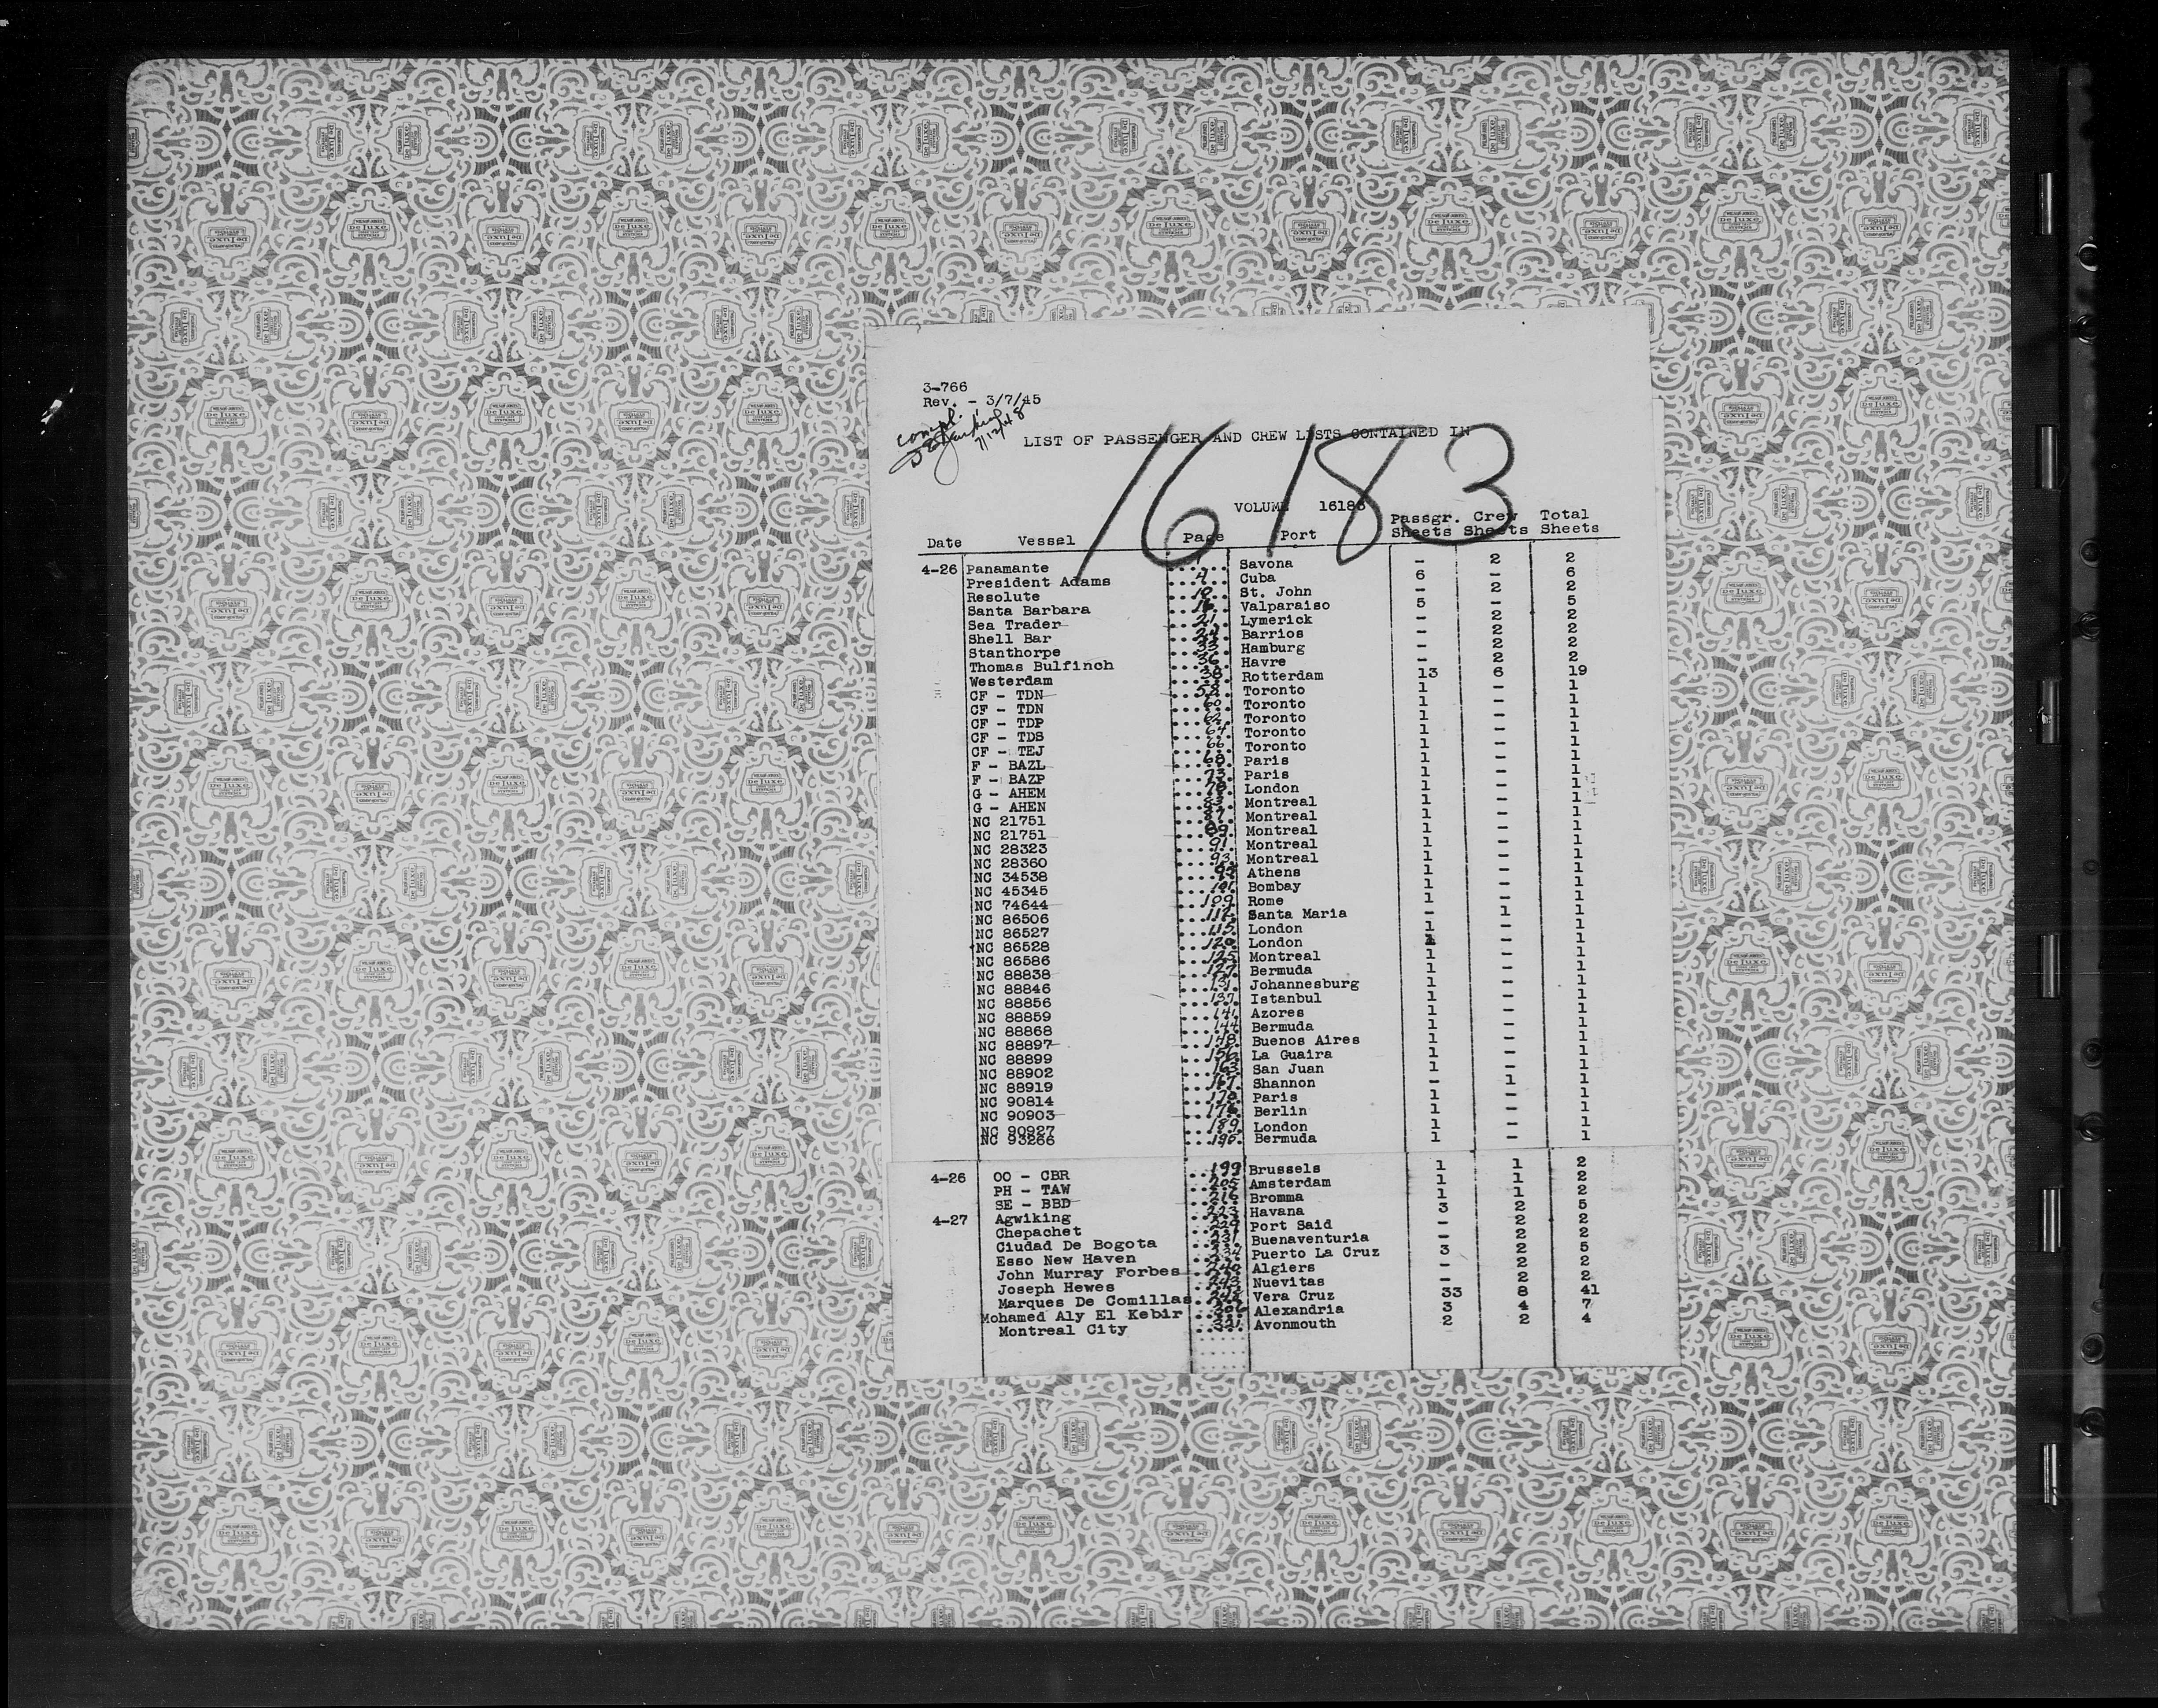 3-766
Rev. - 3/7/45
compl.
7/12/48
LIST OF PASSENGER AND CREW LISTS CONTAINED IN
16183
VOLUME 16183
Date Vessel Page Port Passgr. Sheets Crew Sheets Total Sheets
4-26 Panamante 1 Savona - 2 2
President Adams 4 Cuba 6 - 6
Resolute 10 St. John - 2 2
Santa Barbara 16 Valparaiso 5 - 5
Sea Trader 21 Lymerick - 2 2
Shell Bar 24 Barrios - 2 2
Stanthorpe 33 Hamburg - 2 2
Thomas Bulfinch 36 Havre - 2 2
Westerdam 38 Rotterdam 13 6 19
CF - TDN 58 Toronto 1 - 1
CF - TDN 60 Toronto 1 - 1
CF - TDP 62 Toronto 1 - 1
CF - TDS 64 Toronto 1 - 1
CF - TEJ 66 Toronto 1 - 1
F - BAZL 68 Paris 1 - 1
F - BAZP 73 Paris 1 - 1
G - AHEM 78 London 1 - 1
G - AHEN 83 Montreal 1 - 1
NC 21751 87 Montreal 1 - 1
NC 21751 89 Montreal 1 - 1
NC 28323 91 Montreal 1 - 1
NC 28360 93 Montreal 1 - 1
NC 34538 Athens 1 - 1
NC 45345 101 Bombay 1 - 1
NC 74644 109 Rome 1 - 1
NC 86506 112 Santa Maria - 1 1
NC 86527 115 London 1 - 1
NC 86528 120 London 1 - 1
NC 86586 125 Montreal 1 - 1
NC 88838 127 Bermuda 1 - 1
NC 88846 131 Johannesburg 1 - 1
NC 88856 137 Istanbul 1 - 1
NC 88859 141 Azores 1 - 1
NC 88868 144 Bermuda 1 - 1
NC 88897 148 Buenos Aires 1 - 1
NC 88899 156 La Guaira 1 - 1
NC 88902 163 San Juan 1 - 1
NC 88919 167 Shannon - 1 1
NC 90814 170 Paris 1 - 1
NC 90903 176 Berlin 1 - 1
NC 90927 189 London 1 - 1
NC 93266 196 Bermuda 1 - 1
4-26 OO - CBR 199 Brussels 1 1 2
PH - TAW 205 Amsterdam 1 1 2
SE - BBD 216 Bromma 1 1 2
4-27 Agwiking 223 Havana 3 2 5
Chepachet 229 Port Said - 2 2
Ciudad De Bogota 231 Buenaventuria - 2 2
Esso New Haven 234 Puerto La Cruz 3 2 5
John Murray Forbes 240 Algiers - 2 2
Joseph Hewes 243 Nuevitas - 2 2
Marques De Comillas Vera Cruz 33 8 41
Mohamed Aly El Kebir Alexandria 3 4 7
Montreal City 321 Avonmouth 2 2 4